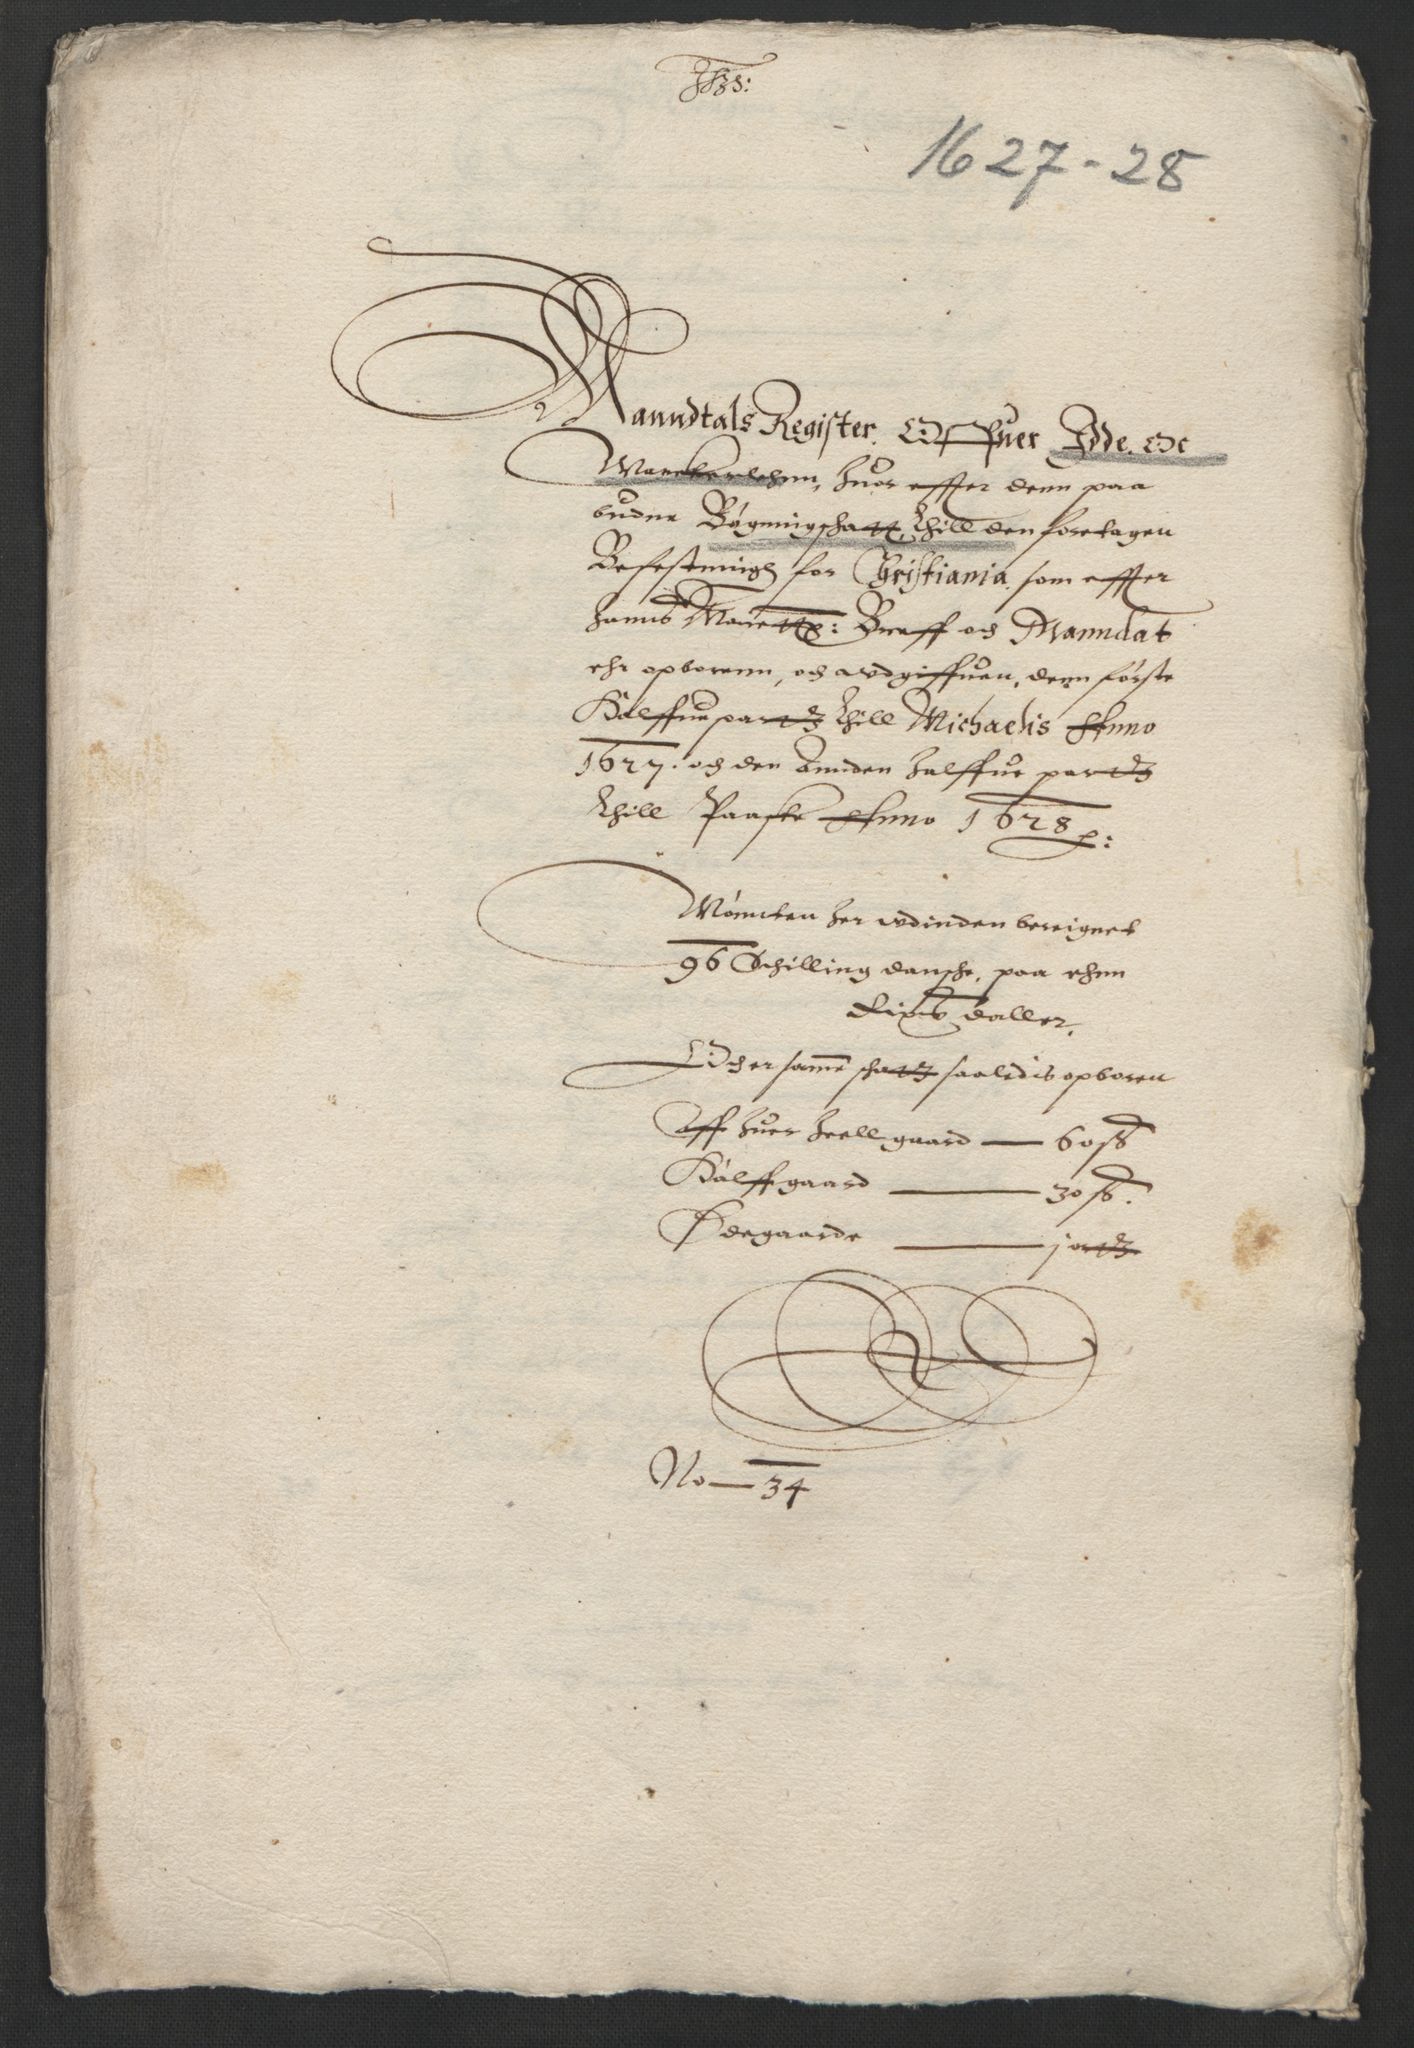 Jhs:
1627-28
Manndtals Register. Offuer Jdde. Oc
Marckerlehnn, huor effter denn paa
budne Bøgningschatt, thill den foretagen
Befestningh for Christiania, som effter
hanns Mayetts: Breff och Manndat
ehr opborenn, och wdgiffuen, denn første
Halffuepartt thill Michaelis Anno
1627. och den Annden halffue partt
thill Paaske Anno 1628 p:
Mønnten her wdinden bereignet
96 Schilling dansche, paa ehnn
Rixs daller.
Och er samme schatt saaledis opboren
Aff huer heell gaard — 60 sß
Halffgaard — 30 sß.
Ødegaarde — j ortt
No — 34